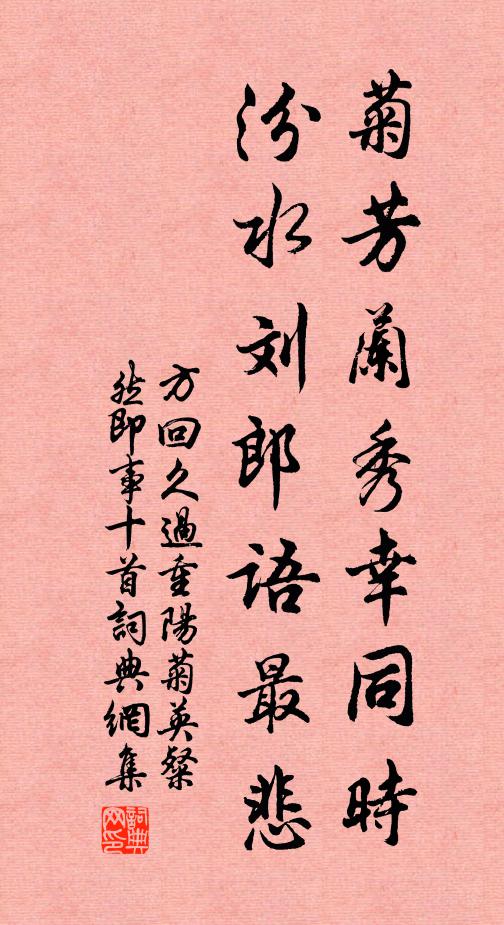 菊芳蘭秀幸同時
汾水刘郎語最悲
方回久過重陽菊英粲
然即事十首詞典網集
詞典
网印